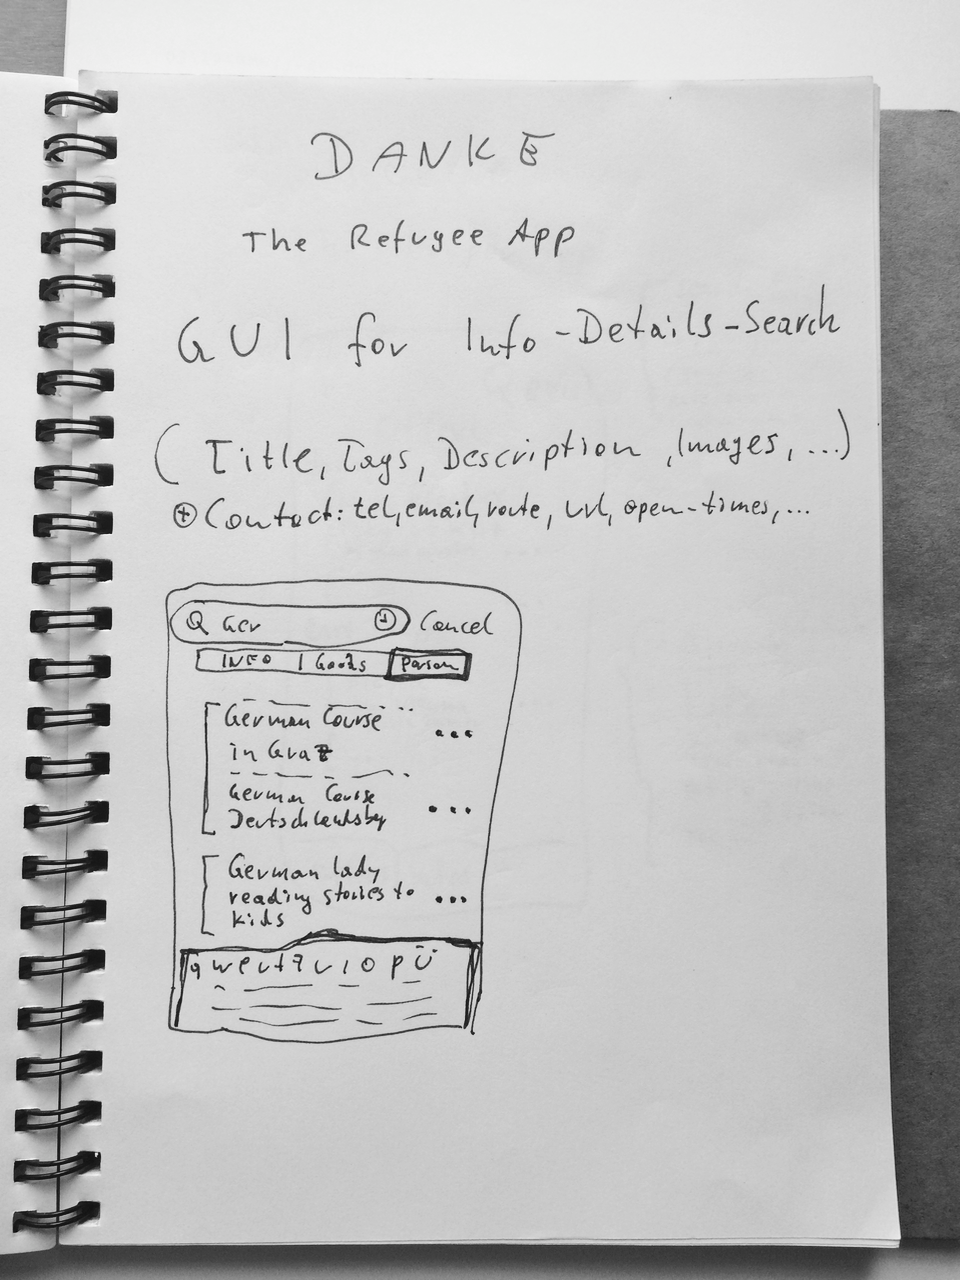 DANKE
The Refugee App
GUI for Info-Details-Search
(Title, Tags, Description, Images, ...)
⊕ Contact: tel, email, route, url, open-times, ...
Ger Cancel
INFO | Goods Person
German Course ...
in Graz
German Course ...
Deutschlandsbg
German lady
reading stories to ...
kids
qwertzuiopü